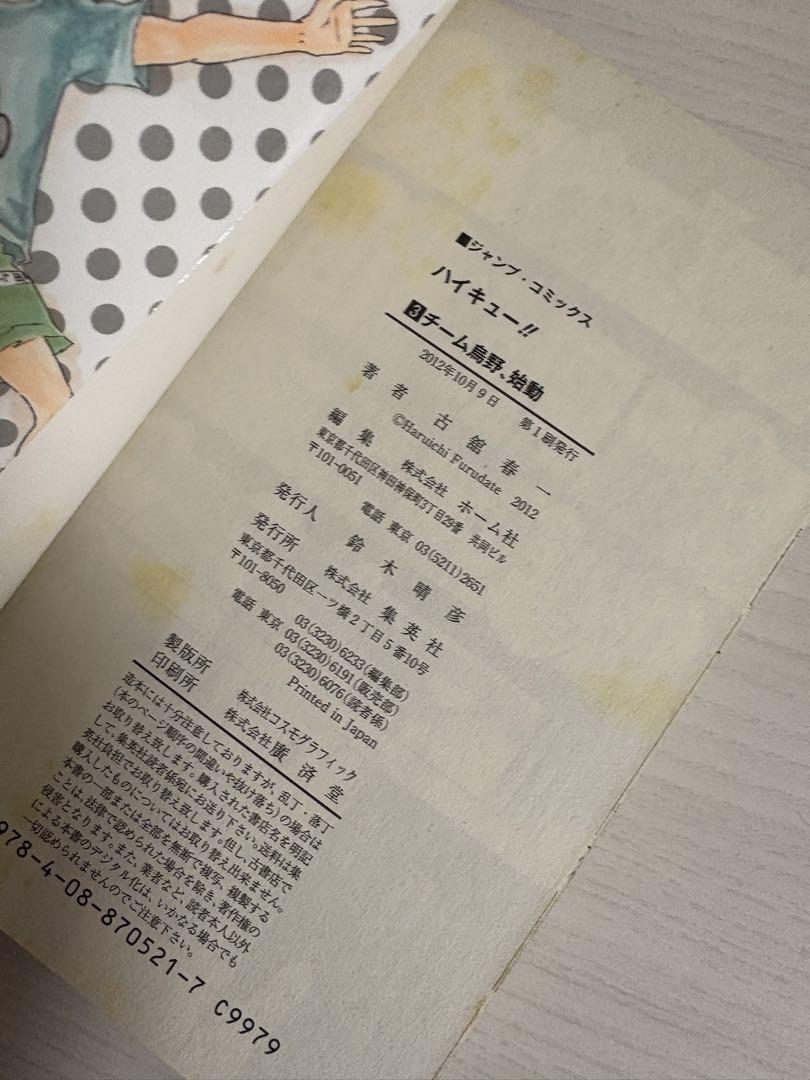 ■ジャンプ・コミックス
ハイキュー!!
3チーム烏野、始動
2012年10月9日 第1刷発行
著者 古舘春一
©Haruichi Furudate 2012
編集 株式会社 ホーム社
東京都千代田区神田神保町3丁目29番 共同ビル
〒101-0051
電話 東京 03(5211)2651
発行人 鈴木晴彦
発行所 株式会社 集英社
東京都千代田区一ツ橋2丁目5番10号
〒101-8050
03(3230)6233(編集部)
電話 東京 03(3230)6191(販売部)
03(3230)6076(読者係)
Printed in Japan
製版所 株式会社コスモグラフィック
印刷所 株式会社 廣済堂
造本には十分注意しておりますが、乱丁・落丁
(本のページ順序の間違いや抜け落ち)の場合は
お取り替え致します。購入された書店名を明記
して、集英社読者係宛にお送り下さい。送料は集
英社負担でお取り替え致します。但し、古書店で
購入したものについてはお取り替え出来ません。
本書の一部または全部を無断で複写、複製する
ことは、法律で認められた場合を除き、著作権の
侵害となります。また、業者など、読者本人以外
による本書のデジタル化は、いかなる場合でも
一切認められませんのでご注意下さい。
978-4-08-870521-7 C9979